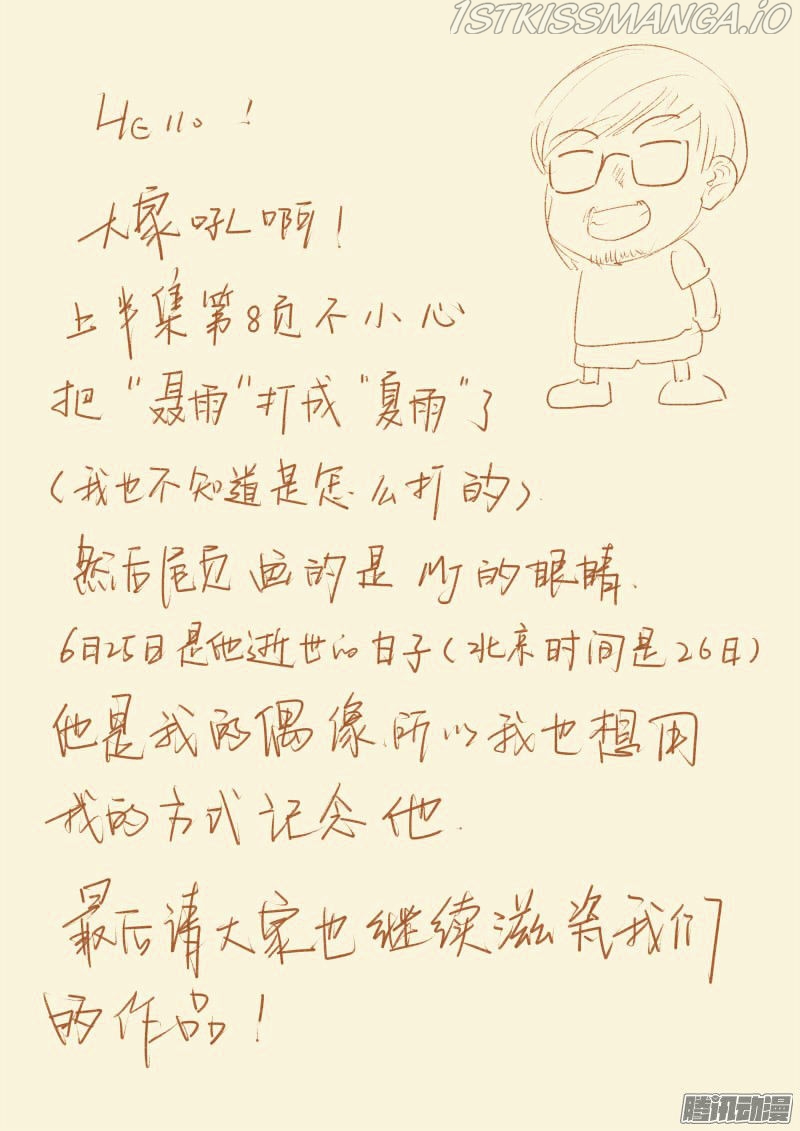 1STKISSMANGA.IO
HEllo!
大家吼啊!
上半集第8页不小心
把“聂雨”打成“夏雨”了
(我也不知道是怎么打的).
然后尾页画的是MJ的眼睛.
6月25日是他逝世的日子(北京时间是26日)
他是我的偶像,所以我也想用
我的方式记念他.
最后请大家也继续滋瓷我们
的作品!
腾讯动漫